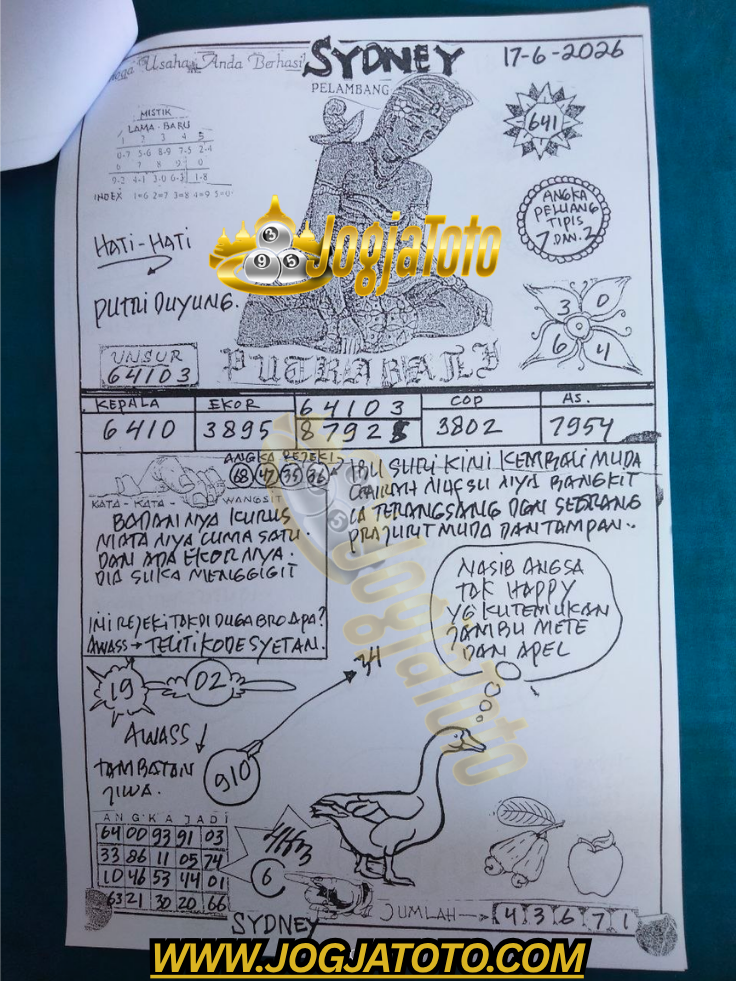 Usaha Anda Berhasil
SYDNEY
17-6-2026
PELAMBANG
MISTIK
LAMA - BARU
1 2 3 4 5
0-7 5-6 8-9 7-5 2-4
6 7 8 9 0
9-2 4-1 3-0 6-3 1-8
INDEX 1=6 2=7 3=8 4=9 5=0
641
ANGKA
PELUANG
TIPIS
7 DAN 2
HATI-HATI
PUTRI DUYUNG.
JogjaToto
3 0
6 4
UNSUR
64103
PUTRA BALI
KEPALA EKOR 64103 COP AS.
6410 3895 8792 3802 7954
ANGKA REJEKI
68 47 35 96
KATA - KATA - WANGSIT
BADANNYA KURUS
MATANYA CUMA SATU.
DAN ADA EKORNYA.
DIA SUKA MENGGIGIT
INI REJEKI TAK DI DUGA BRO APA?
AWASS → TELITI KODE SYETAN.
IBU SURI KINI KEMBALI MUDA
GAIRAH NAFSU NYA BANGKIT
IA TERANGSANG DGN SEORANG
PRAJURIT MUDA DAN TAMPAN..
NASIB ANGSA
TAK HAPPY
YG KUTEMUKAN
JAMBU METE
DAN APEL
19 02
34
AWASS
910
TAMBATAN
JIWA.
ANGKA JADI
64 00 93 91 03
33 86 11 05 74
10 46 53 44 01
63 21 30 20 66
6
JUMLAH → 4 3 6 7 1
SYDNEY
JogjaToto
WWW.JOGJATOTO.COM